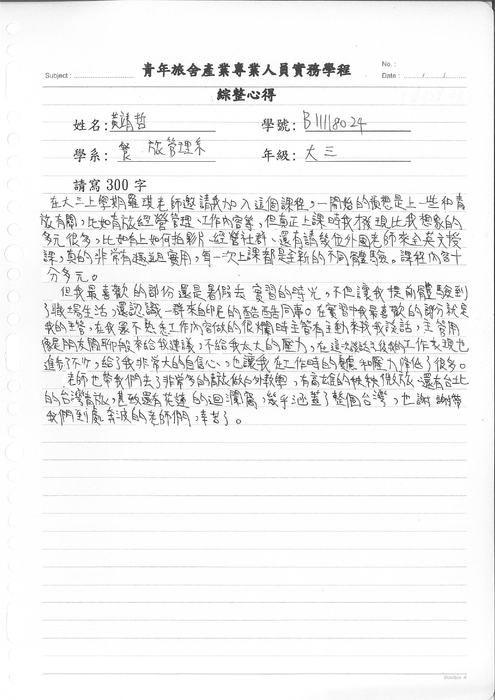 青年旅舍產業專業人員實務學程
No. :
Subject :
Date : / /
綜整心得
姓名: 黃靖哲 學號: B11118024
學系: 餐旅管理系 年級: 大三
請寫 300 字
在大三上學期羅琪老師邀請我加入這個課程,一開始的想是上一些和青
旅有關,比如青旅經營管理、工作內容等,但真正上課時我才發現比我想像的
多元很多,比如有上如何拍影片、經營社群、還有請幾位外國老師來全英文授
課,真的非常有趣且實用,每一次上課都是全新的不同體驗。課程內容十
分多元。
但我最喜歡的部份還是暑假去實習的時光,不但讓我提前體驗到
了職場生活,還認識一群來自印尼的酷酷同事。在實習中我最喜歡的部分就是
我的主管,在我還不熟悉工作內容做的很爛時主管有主動來找我談話,主管用
像是朋友間聊天般來給我建議,不給我太大的壓力,在這次談話之後我的工作表現也
進步了不少,給了我非常大的自信心,也讓我在工作時的焦慮和壓力降低了很多。
老師也帶我們去了非常多的青旅做校外教學,有高雄的 旅、還有台北
的台灣青旅,甚至還有花蓮的洄瀾窩,幾乎涵蓋了整個台灣,也謝謝帶
我們到處奔波的老師們,辛苦了。